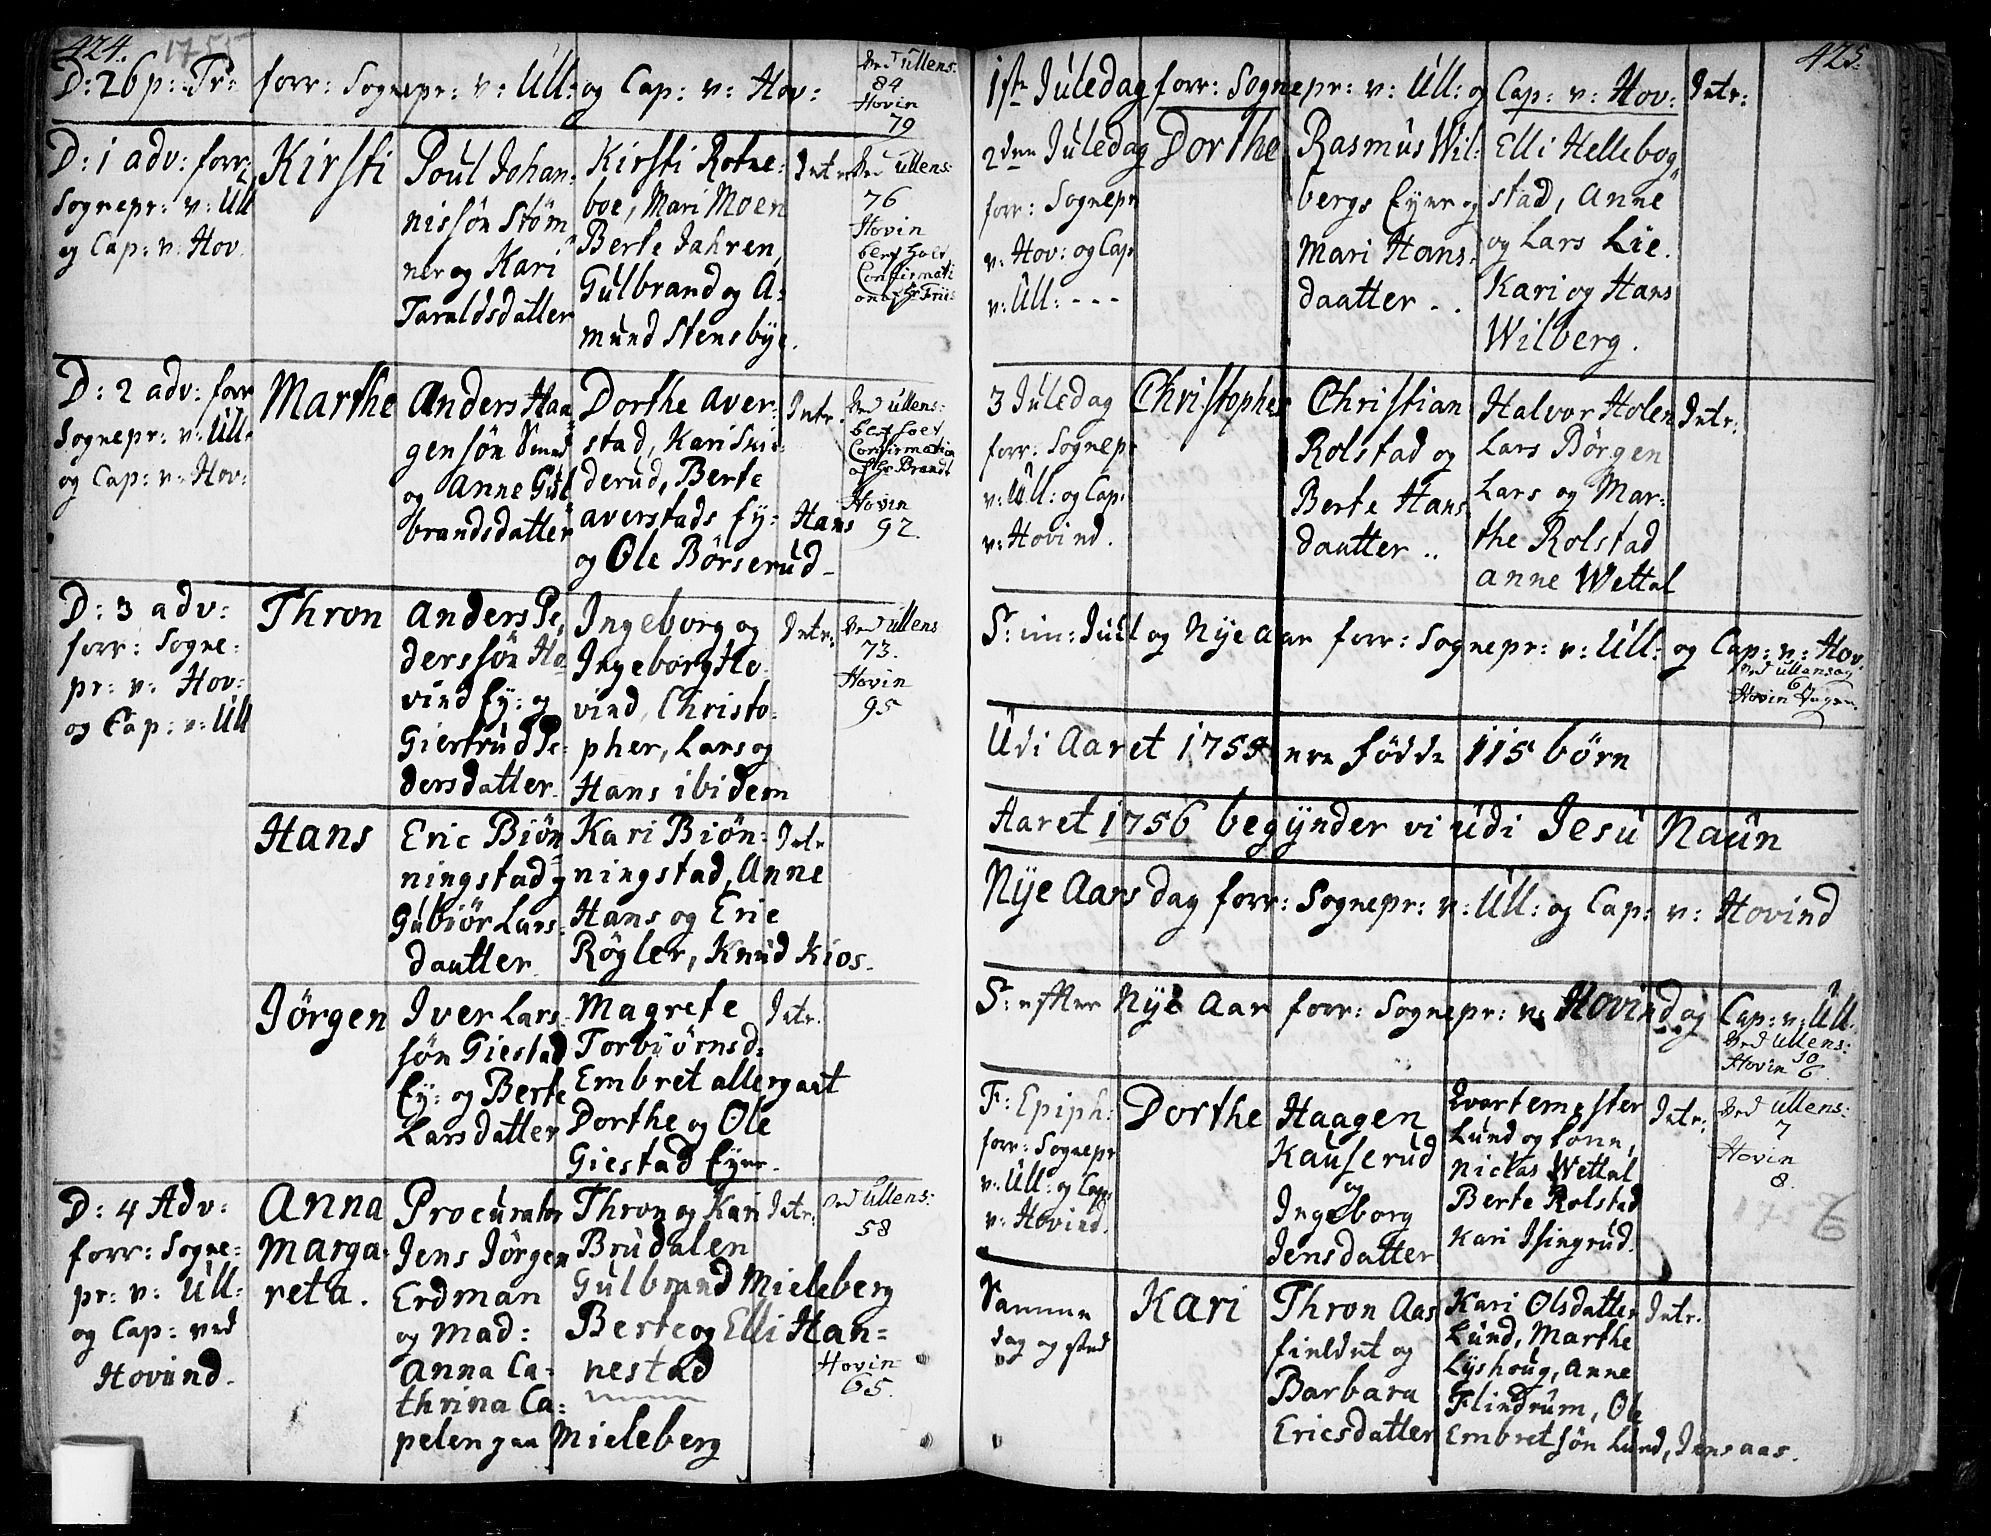 424. 1755
D: 26 p: Tr: forr: Sognepr: v: Ull: og Cap: v: Hov:
Ved Ullens:
84
Hovin
79
D: 1 adv: forr:
Sognepr: v: Ull
og Cap: v: Hov.
Kirsti
Poul Johan-
nissøn Støm
ner og Kari
Taraldsdatter
Kirsti Rotne-
boe, Mari Moen
Berte Jahren,
Gulbrand og A-
mund Stensbye.
Intr.
Ved Ullens:
76
Hovin
blev holt
Confirmati
on af Hr Friis
D: 2 adv: forr
Sognepr: v: Ull:
og Cap: v: Hov:
Marthe
Anders Haa
gensøn Smed
og Anne Gul
brandsdatter
Dorthe Aver-
stad, Kari Smi-
derud, Berte
Averstads Ey: Hans
og Ole Børserud
Intr.
Ved Ullens:
blev holt
Confirmation
af Hr Brandt
Hovin
92.
D: 3 adv:
forr: Sogne-
pr: v: Hov:
og Cap: v: Ull
Thron
Anders Pe-
derssøn Ho
vind Ey: og
Giertrud Pe-
dersdatter.
Ingeborg og
Ingeborg Ho-
vind, Christo-
pher, Lars og
Hans ibidem
Intr:
Ved Ullens
73.
Hovin
95
Hans
Eric Biøn
ningstad og
Gubiør Lars-
daatter
Kari Biøn-
ningstad, Anne
Hans og Eric
Røgler, Knud Kios.
Intr
Jørgen
Iver Lars-
søn Giestad
Ey: og Berte
Larsdatter
Magrete
Torbiørnsd:
Embret allergaat
Dorthe og Ole
Giestad Eyer.
Intr.
D: 4 Adv:
forr: Sogne-
pr: v: Ull:
og Cap: ved
Hovind.
Anna
Marga-
reta.
Procurator
Jens Jørgen
Erdman
og Mad:
Anna Ca-
thrina Ca-
pelen paa Mieleberg
Thron og Kari
Brudalen
Gulbrand Mieleberg
Berte og Elli Han-
nestad
Intr:
Ved Ullens:
58
Hovin
65.
425.
1ste Juledag forr: Sognepr: v: Ull: og Cap: v: Hov: Intr:
2den Juledag
forr: Sognepr
v: Hov: og Cap
v: Ull: - - -
Dorthe
Rasmus Wil-
bergs Eyer og
Mari Hans-
daatter . .
Elli Hellebog
stad, Anne
og Lars Lie.
Kari og Hans
Wilberg.
3 Juledag
forr: Sognepr
v: Ull: og Cap:
v: Hovind.
Christopher
Christian
Rolstad og
Berte Hans
daatter ..
Halvor Holen
Lars Børgen
Lars og Mar-
the Rolstad
Anne Wettal
Intr:
S: im: Juul og Nye Aar forr: Sognepr: v: Ull: og Cap: v: Hov.
Ved Ullensag
67
Hovin Ingen.
Udi Aaret 1755 ere fødde 115 børn
Aaret 1756 begynder vi udi Jesu Naun
Nye Aars dag forr: Sognepr: v: Ull: og Cap: v: Hovind
S: efter Nye Aar forr: Sognepr: v: Hovind og Cap: v: Ull.
Ved Ullens:
10
Hovin 6.
F: Epiph:
forr: Sognepr
v: Ull: og Cap:
v: Hovind.
Dorthe
Haagen
Kauserud
og
Ingeborg
Jensdatter
Qvartemester
Lund og Kone,
Niclas Wettal
Berte Rolstad
Kari Isingrud.
Intr:
Ved Ullens:
7
Hovin
8.
Samme
dag og sted
Kari
Thron Aas
fieldet og
Barbara
Ericsdatter
Kari Olsdatter
Lund, Marthe
Lyshoug, Anne
Flindrum, Ole
Embretsøn Lund, Jens Aas.
Intr.